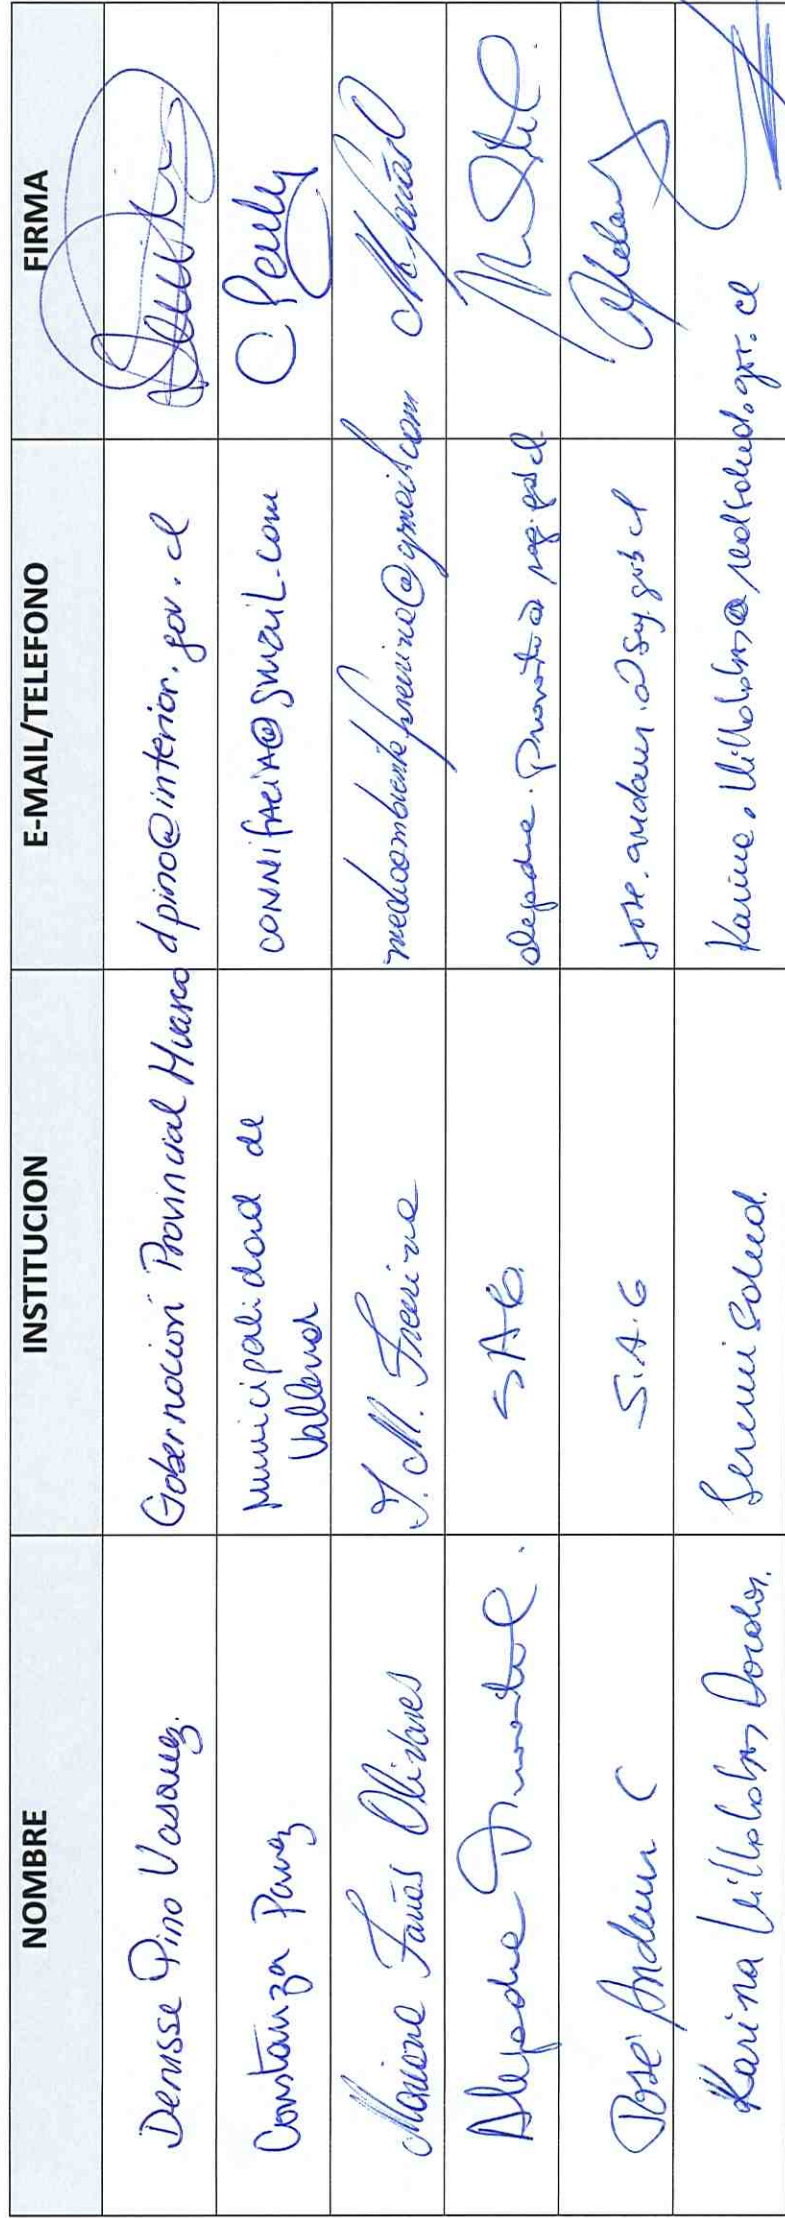 NOMBRE INSTITUCION E-MAIL/TELEFONO FIRMA
Denisse Pino Vasquez. Gobernacion Provincial Huasco dpino@interior.gov.cl
Constanza Pavez Municipalidad de connifacia@gmail.com C Peully
Vallenar
Mariana Farías Olivares I. M. Freirina medioambientefreirina@gmail.com MFarías O
Alejandra SAG. @sag.gob.cl
José Andaur C S.A.G jose.andaur@sag.gob.cl
Karina Villalobos Seremi Salud. Karina.Villalobos@redsalud.gov.cl